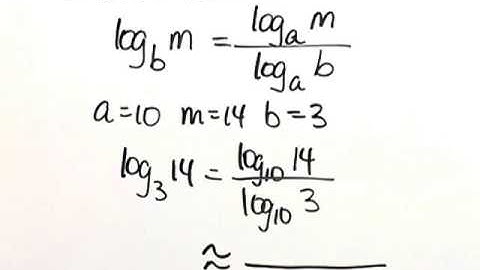 log_b m = log_a m / log_a b
a=10 m=14 b=3
log_3 14 = log_10 14 / log_10 3
≈ ________